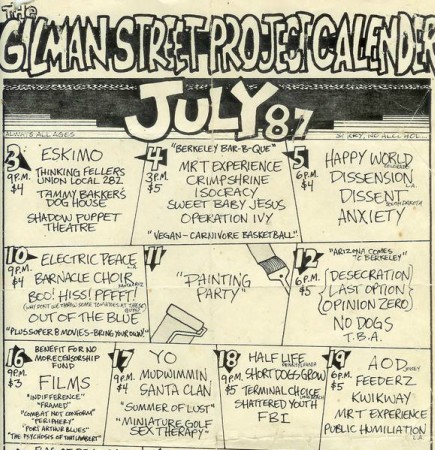 THE
GILMAN STREET PROJECT CALENDER
JULY 87
ALWAYS ALL AGES
SORRY, NO ALCOHOL
3
9 P.M.
$4
ESKIMO
THINKING FELLERS
UNION LOCAL 282
TAMMY BAKKER'S
DOG HOUSE
SHADOW PUPPET
THEATRE
4
3 P.M.
$5
"BERKELEY BAR-B-QUE"
MRT EXPERIENCE
CRIMPSHRINE
ISOCRACY
SWEET BABY JESUS
OPERATION IVY
"VEGAN-CARNIVORE BASKETBALL"
5
6 P.M.
$4
HAPPY WORLD
DISSENSION
L.A.
DISSENT
SOUTH DAKOTA
ANXIETY
10
9 P.M.
$4
ELECTRIC PEACE
L.A.
BARNACLE CHOIR
BOO! HISS! PFFFT!
(WHY DON'T WE THROW SOME TOMATOES AT THESE
OUT OF THE BLUE
"PLUS SUPER 8 MOVIES-BRING YOUR OWN!"
11
"PAINTING
PARTY"
12
6 P.M.
$5
"ARIZONA COMES
TO BERKELEY"
DESECRATION
LAST OPTION
OPINION ZERO
NO DOGS
T.B.A.
16
9 P.M.
$3
BENEFIT FOR NO
MORE CENSORSHIP
FUND
FILMS
"INDIFFERENCE"
"FRAMED"
"COMBAT NOT CONFORM"
"PERIPHERY"
"PORT ARTHUR BLUES"
"THE PSYCHOSIS OF THI LAMBERT"
17
9 P.M.
$4
YO
MUDWIMMIN
SANTA CLAN
"SUMMER OF LUST"
"MINIATURE GOLF
SEX THERAPY"
18
9 P.M.
$5
HALF LIFE
PENNSYLVANIA
SHORT DOGS GROW
TERMINAL CHOICE
LONG BEACH
SHATTERED YOUTH
FBI
19
6 P.M.
$5
AOD
JERSEY
FEEDERZ
KWIKWAY
MRT EXPERIENCE
PUBLIC HUMILIATION
L.A.